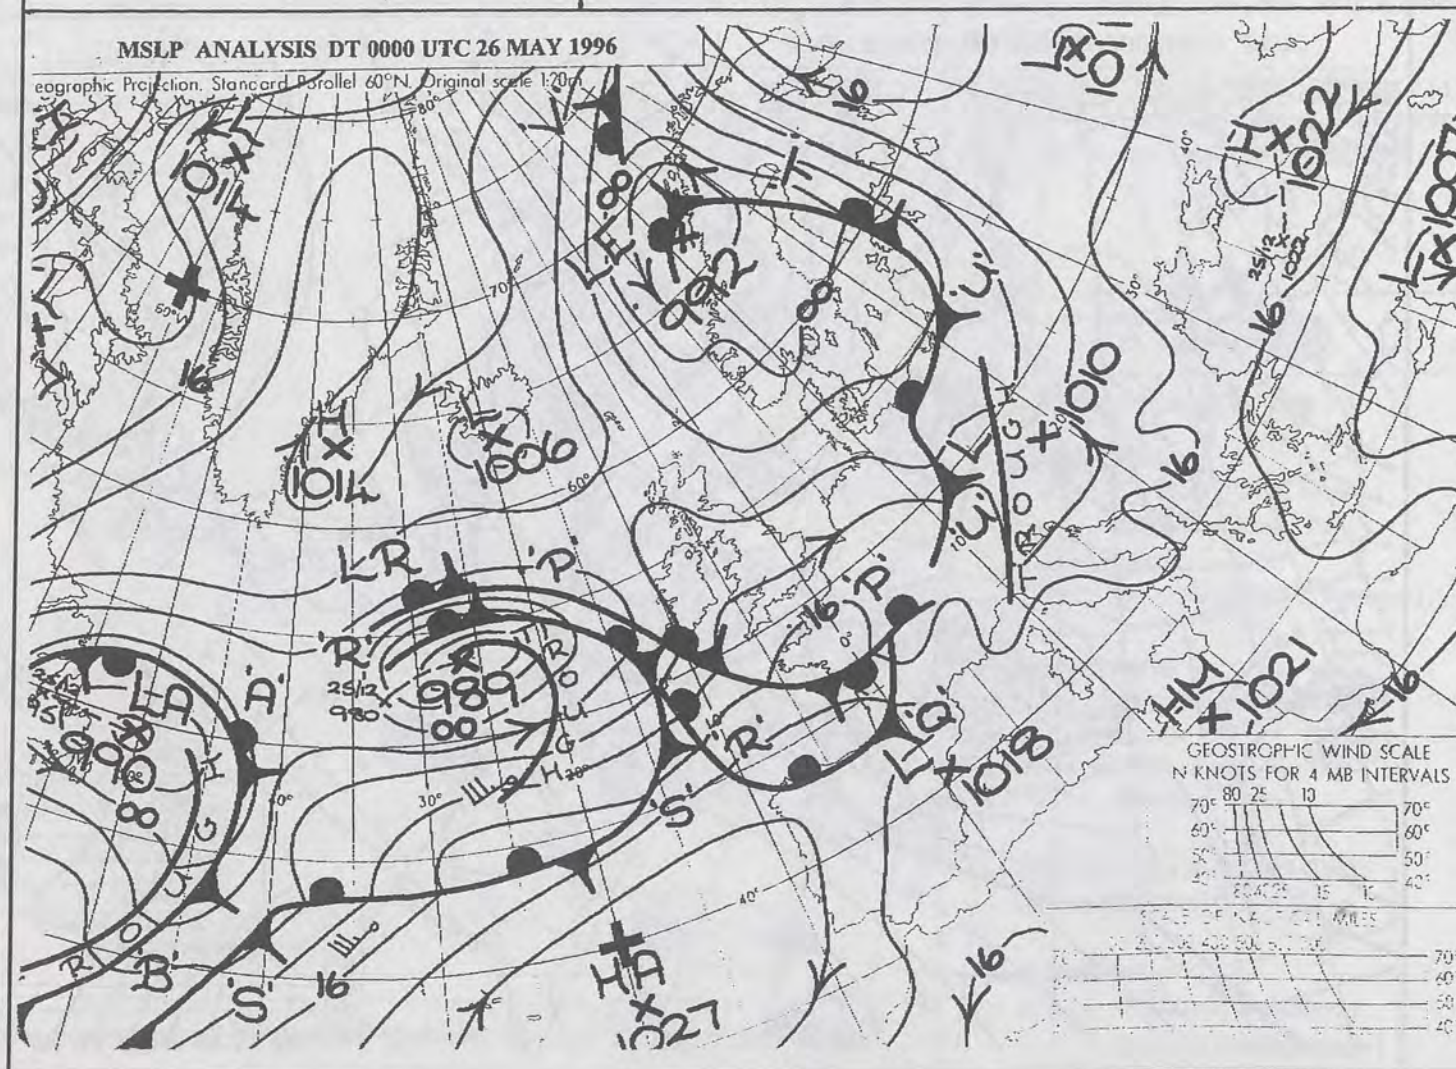 MSLP ANALYSIS DT 0000 UTC 26 MAY 1996
eographic Projection. Standard Parallel 60°N. Original scale 1:20m
L
1014
16
80°
70°
60°
50°
H
1014
L
1006
LF
8
992
8
'T'
'U'
16
L
1011
H
1022
25/12
1022
16
L
1005
40°
30°
20°
10°
L
1010
TROUGH
'U'
16
LR
'P'
'R'
25/12
980
989
00
TROUGH
'P'
16
0°
'R'
'Q'
L
1018
HM
1021
16
25/12
LA
990
8
'A'
TROUGH
'B'
30°
20°
'S'
'S'
16
40°
HA
1027
16
GEOSTROPHIC WIND SCALE
N KNOTS FOR 4 MB INTERVALS
80 25 10
70° 70°
60° 60°
50° 50°
40° 40°
80 40 25 15 10
SCALE OF NAUTICAL MILES
70 70
60
50
40